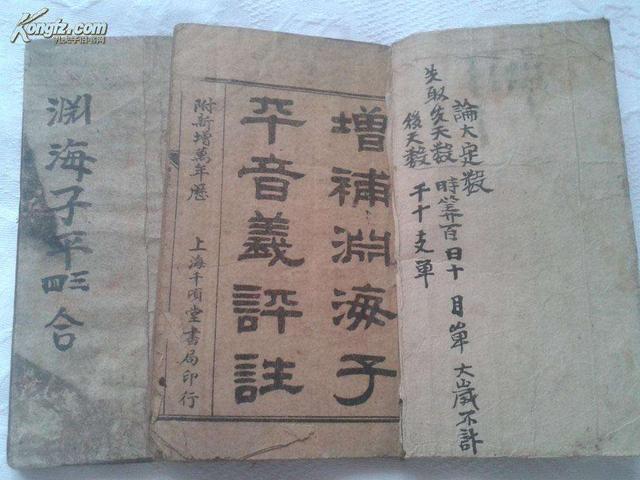 Kongfz.com
孔夫子旧书网
論大定數
先取先天數 時筭百日十月單大歲不計
後天數 干十支單
增補淵海子
平音義評註
附新增萬年歷 上海千頃堂書局印行
渊海子平三四合